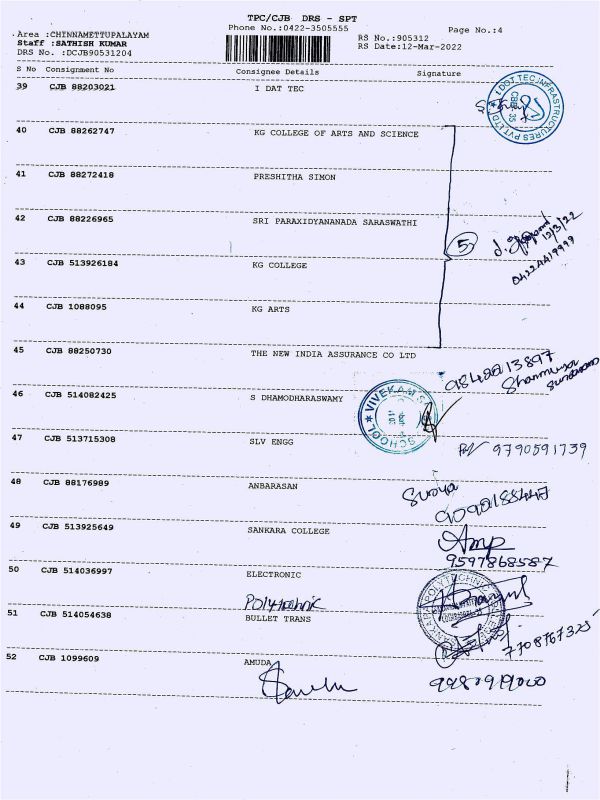 TPC/CJB DRS - SPT
Phone No.:0422-3505555
Page No.:4
Area :CHINNAMETTUPALAYAM
Staff :SATHISH KUMAR
DRS No. :DCJB90531204
RS No.:905312
RS Date:12-Mar-2022
S No Consignment No Consignee Details Signature
39 CJB 88203021 I DAT TEC
I DOT TEC INFRASTRUCTURES PVT LTD
CBE 35
40 CJB 88262747 KG COLLEGE OF ARTS AND SCIENCE
41 CJB 88272418 PRESHITHA SIMON
42 CJB 88226965 SRI PARAXIDYANANADA SARASWATHI
5
12/3/22
04224419999
43 CJB 513926184 KG COLLEGE
44 CJB 1088095 KG ARTS
45 CJB 88250730 THE NEW INDIA ASSURANCE CO LTD
46 CJB 514082425 S DHAMODHARASWAMY
SCHOOL
47 CJB 513715308 SLV ENGG
9790591739
48 CJB 88176989 ANBARASAN
Surya
49 CJB 513925649 SANKARA COLLEGE
9597868587
50 CJB 514036997 ELECTRONIC
Polytechnic
51 CJB 514054638 BULLET TRANS
52 CJB 1099609 AMUDA